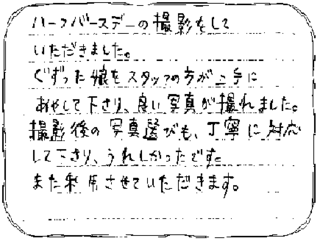 ハーフバースデーの撮影をして
いただきました。
ぐずった娘をスタッフの方が上手に
あやして下さり、良い写真が撮れました。
撮影後の写真選びも、丁寧に対応
して下さり、うれしかったです。
また利用させていただきます。